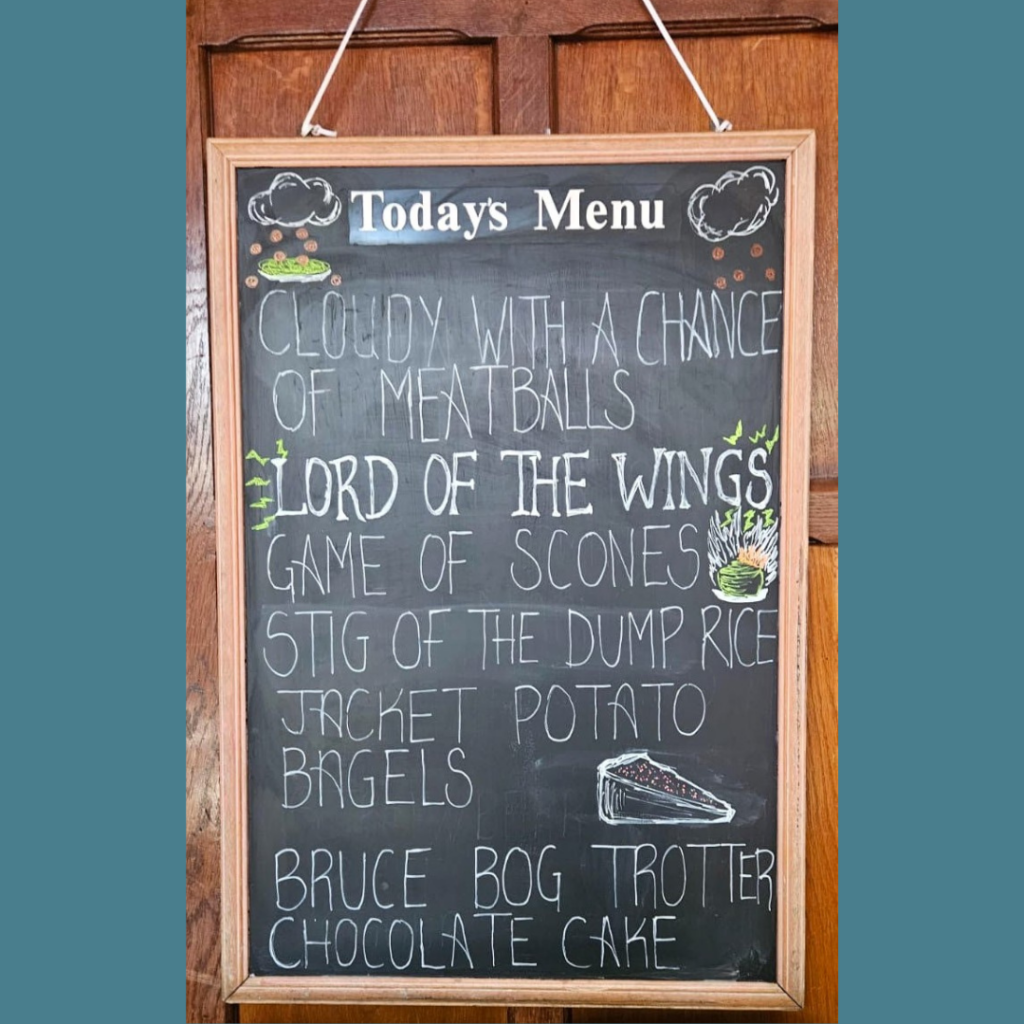 Today's Menu
CLOUDY WITH A CHANCE
OF MEATBALLS
LORD OF THE WINGS
GAME OF SCONES
STIG OF THE DUMP RICE
JACKET POTATO
BAGELS
BRUCE BOG TROTTER
CHOCOLATE CAKE